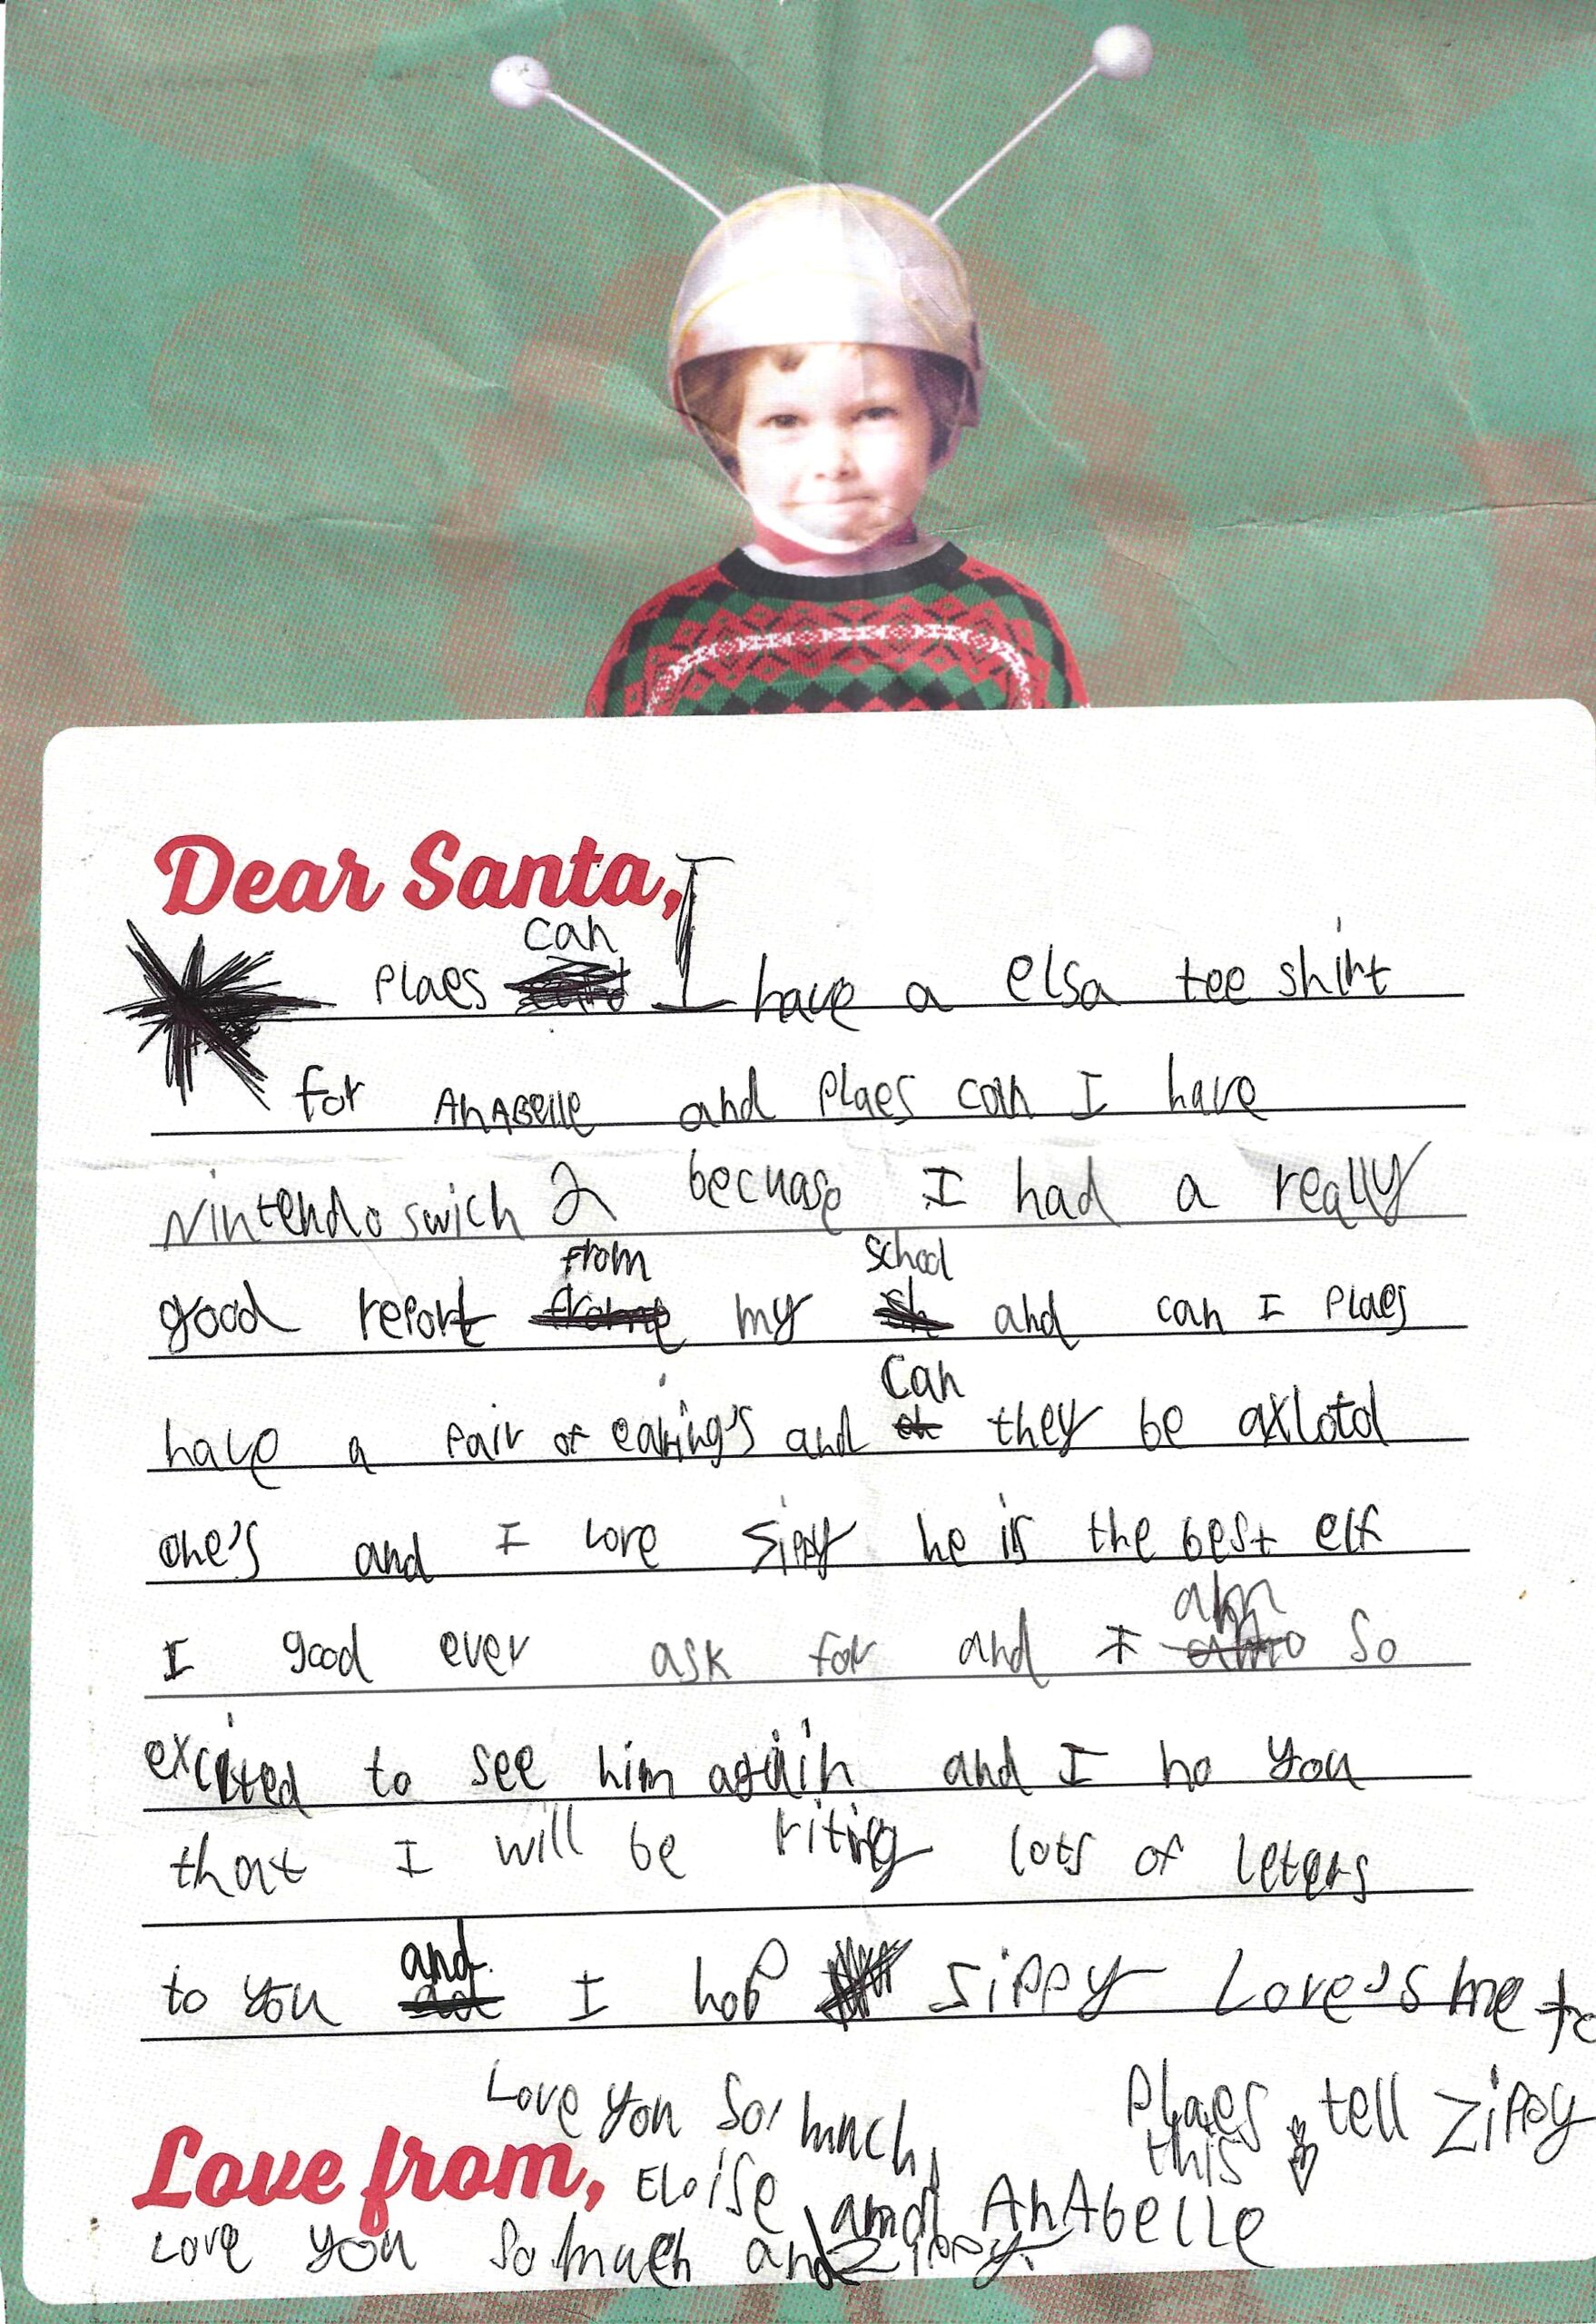 Dear Santa,
Plaes can I have a elsa tee shirt
for AnABelle and Plaes can I have
Nintendo swich 2 becuase I had a really
good report from my school and can I Plaes
have a Pair of earing's and can they be axlotd
one's and I love Sippy he is the best elf
I good ever ask for and I am so
excited to see him again and I no you
that I will be riting lots of leters
to you and I hop Sippy Love's me to
Love you So much,
Plaes tell Zippy
this
Love from, ELoise and AnAbelle
Love you so much and Zippy